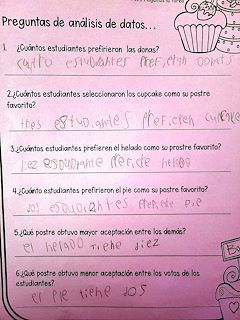 Preguntas de análisis de datos...
1. ¿Cuántos estudiantes prefirieron las donas?
cuatro estudiantes prefieren donats
2.¿Cuántos estudiantes seleccionaron los cupcake como su postre
favorito?
tres estudiantes prefieren
3.¿Cuántos estudiantes prefieren el helado como su prostre favorito?
diez estudiante prefiere helado
4.¿Cuántos estudiantes prefirieron el pie como su postre favorito?
dos estudiantes prefiere pie
5.¿Qué postre obtuvo mayor aceptación entre los demás?
el helado tiene diez
6.¿Qué postre obtuvo menor aceptación entre los votos de los
estudiantes?
er pie tiene dos